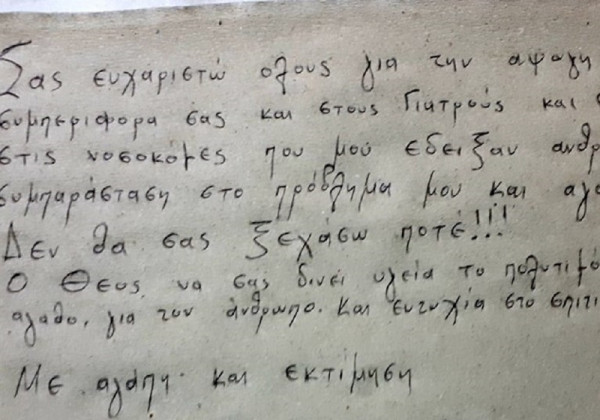 Σας ευχαριστώ ολους για την αψογη
συμπεριφορα σας και στους Γιατρούς και
στις νοσοκόμες που μού εδειξαν ανθρ
συμπαράσταση στο πρόβλημα μου και αγα
Δεν θα σας ξεχάσω ποτέ!!!
Ο Θεος να σας δινει υγεία το πολυτιμό
αγαθο, για τον άνθρωπο. Και ευτυχία στο σπιτι
Με αγάπη και εκτίμηση